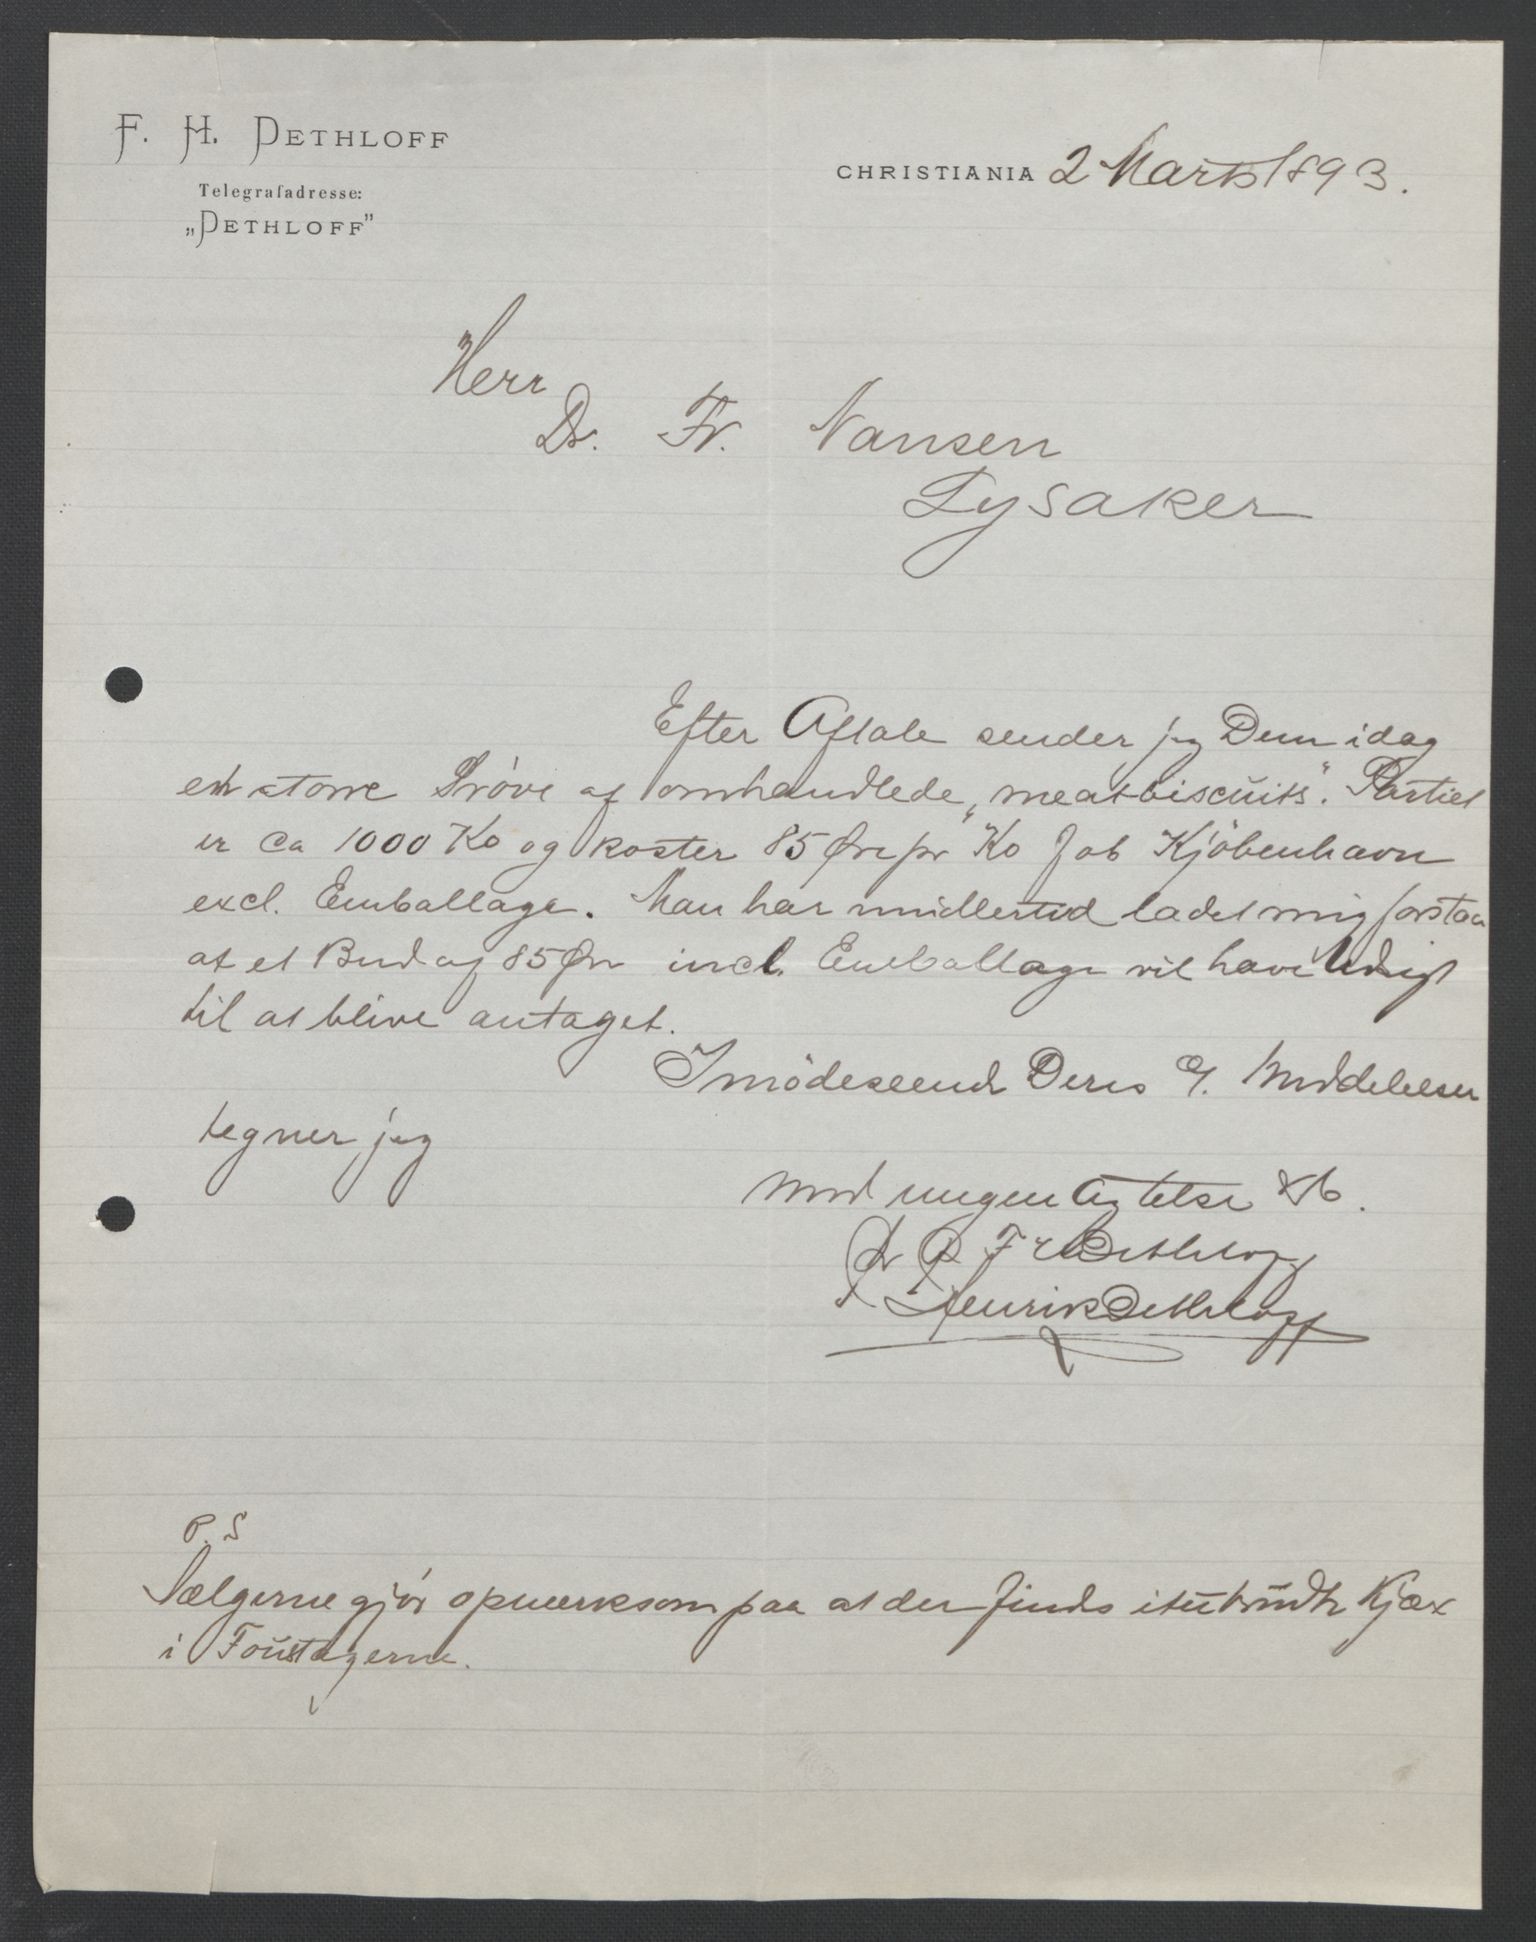 F. H. DETHLOFF
Telegrafadresse:
„DETHLOFF”
CHRISTIANIA 2 Marts 1893.
Herr
Dr. Fr. Nansen
Lysaker
Efter Aftale sender jeg Dem idag
en større Prøve af omhandlede „meat-biscuits”. Partiet
er ca 1000 Ko og koster 85 Øre pr Ko fob Kjöbenhavn
excl. Emballage. Man har imidlertid ladet mig forstaa
at et Bud af 85 Øre incl. Emballage vil have Udsigt
til at blive antaget.
Imödeseende Deres Meddelelser
tegner jeg
med megen Agtelse
pr p. F H Dethloff
Henrik Dethloff
P. S
Sælgerne gjør opmerksom paa at der finds itubrudte Kjæx
i Foustagerne.